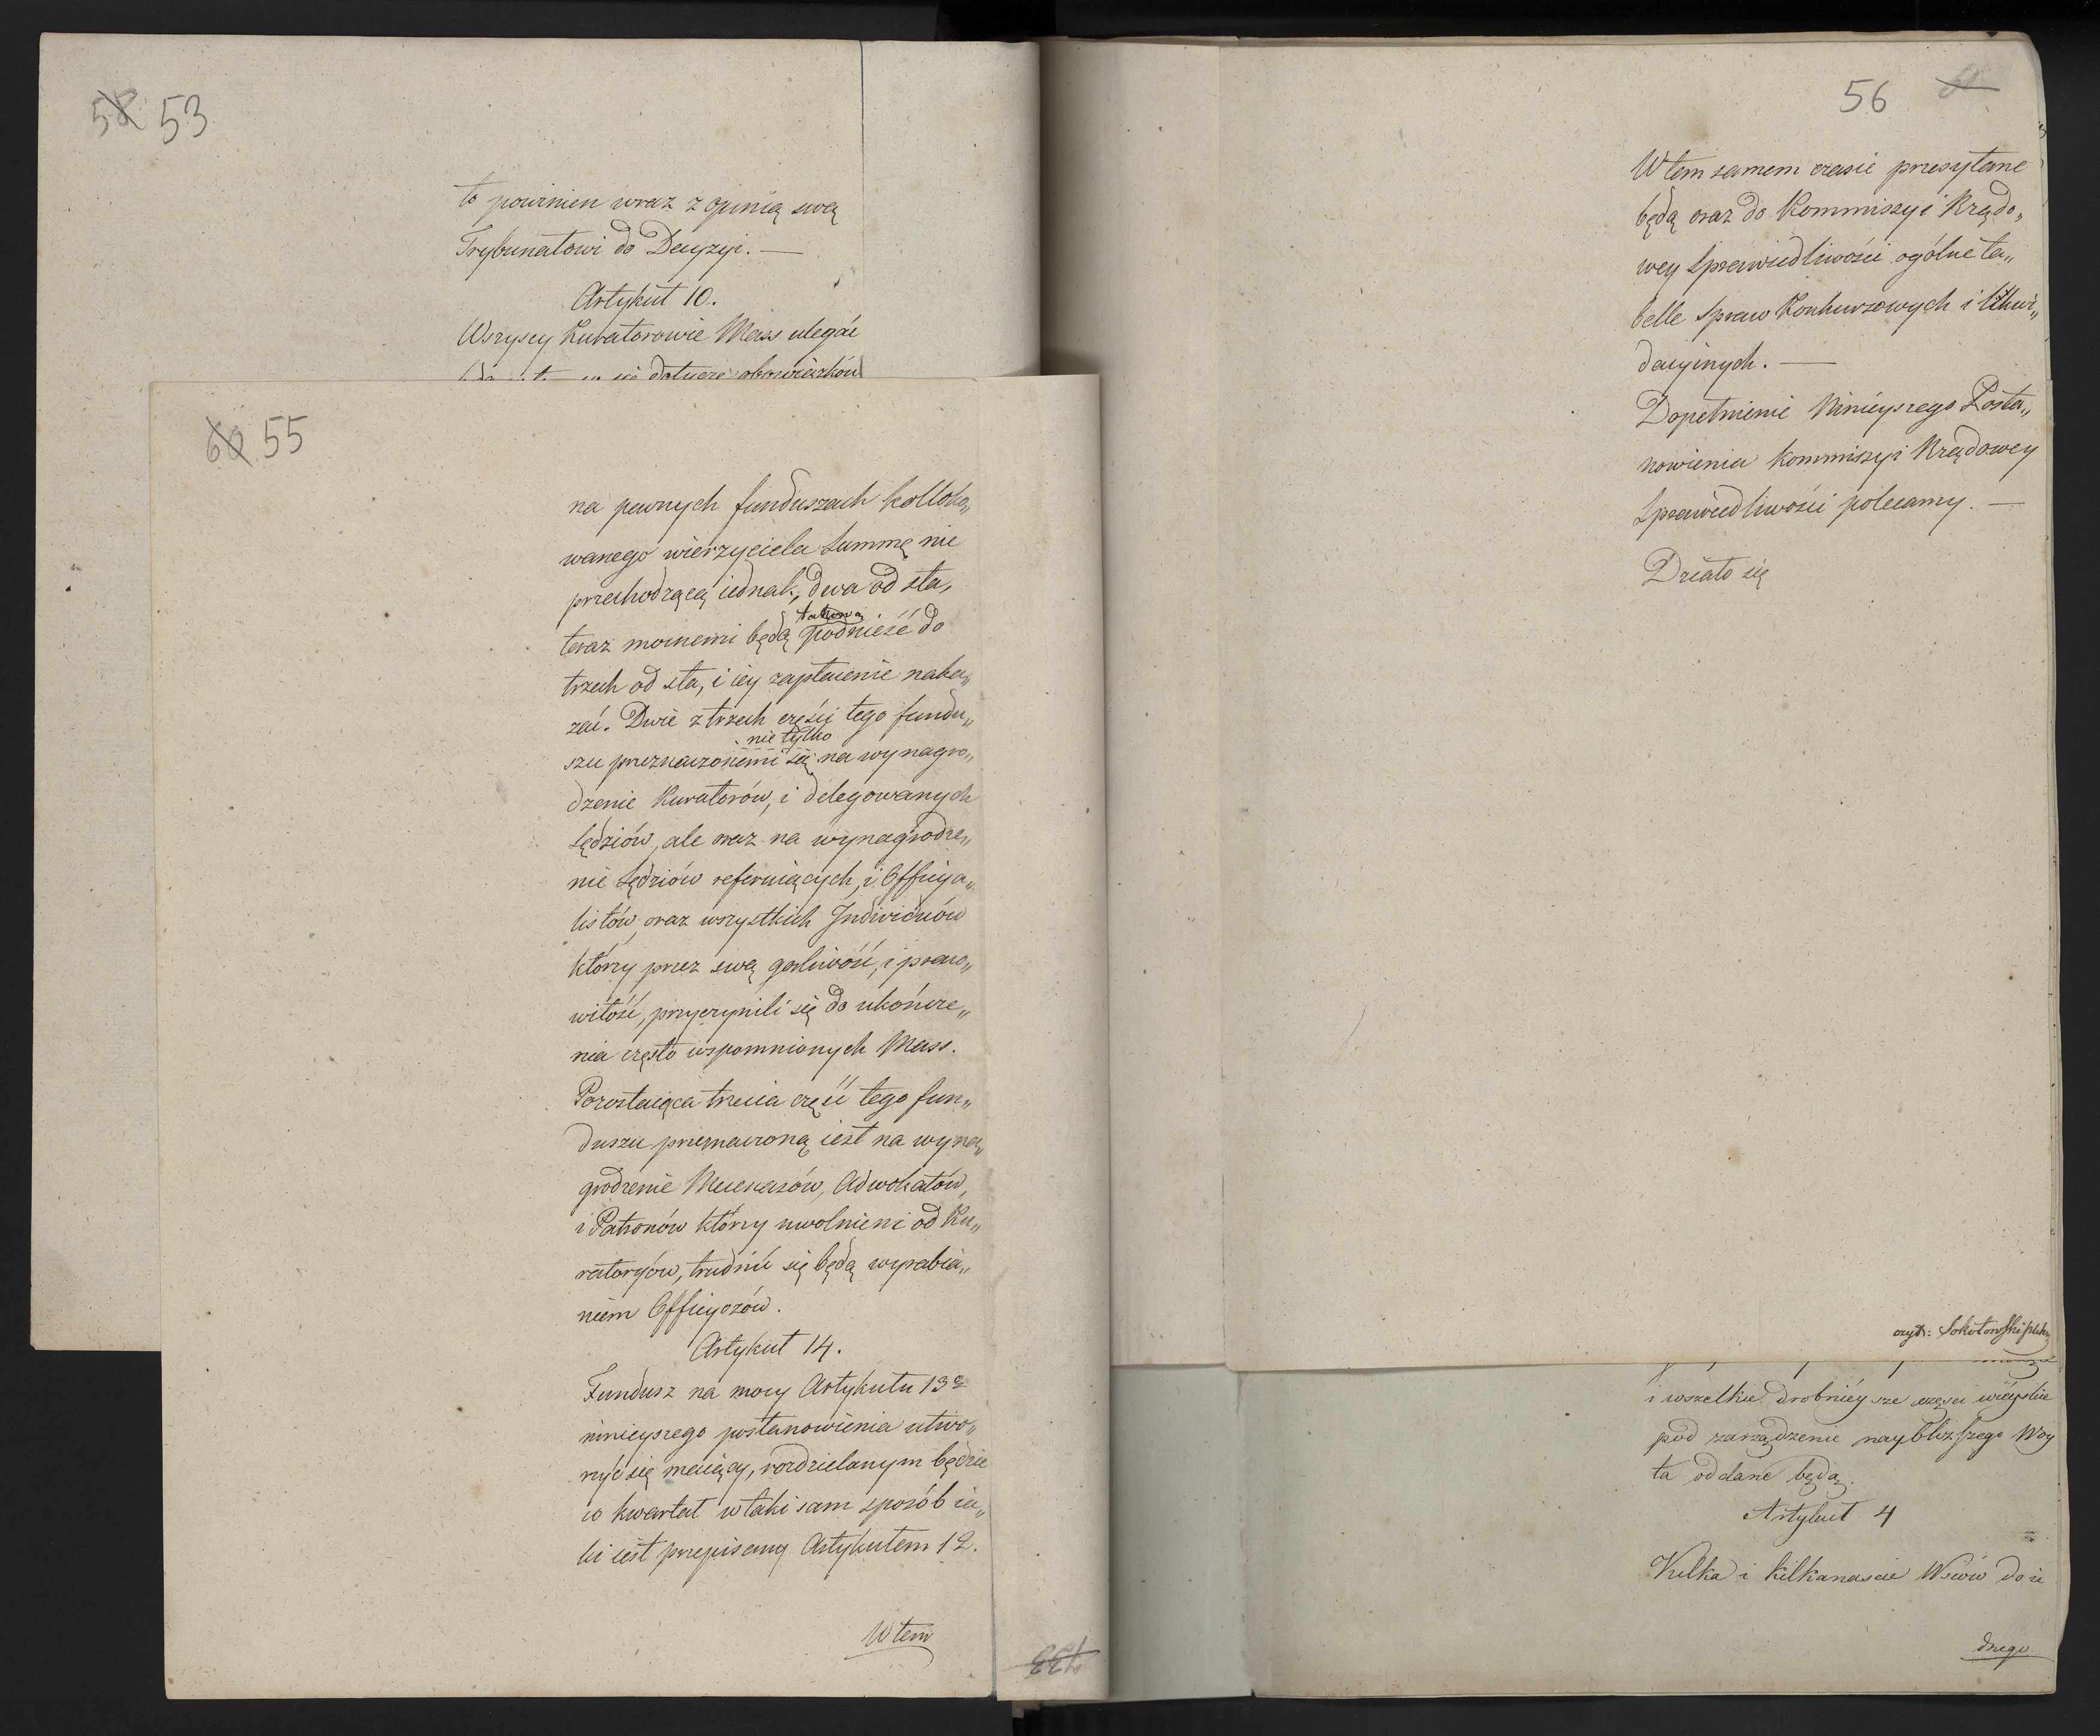 58 53
to powinien wraz z opinią swą
Trybunałowi do Decyzyi. —
Artykuł 10.
Wszyscy Kuratorowie Mass ulegać
się dotycze obowiązków
60 55
na pewnych funduszach kolloko„
wanego wierzyciela Summę nie
przechodzącą iednak, dwa od sta,
teraz mocnemi będą takową podnieść do
trzech od sta, i iey zapłacenie naka„
zać. Dwie z trzech części tego fundu„
szu przeznaczonemi są nie tylko na wynagro„
dzenie Kuratorów, i delegowanych
Sędziów, ale oraz na wynagrodze„
nie Sędziów referuiących, i Officya„
listów, oraz wszystkich Individuów
którzy przez swą gorliwość, i praco„
witość, przyczynili się do ukończe„
nia często wspomnionych Mass.
Pozostaiąca trzecia część tego fun„
duszu przeznaczoną iest na wyna„
grodzenie Mecenasów, Adwokatów,
i Patronów którzy uwolnieni od Ku„
ratoryów, trudnić się będą wyrabia„
niem Officyozów.
Artykuł 14.
Fundusz na mocy Artykułu 13º
ninieyszego postanowienia utwo„
rzyć się maiący, rozdzielanym będzie
co kwartał w taki sam sposób ia„
ki iest przepisany Artykułem 12.
W tem
56
W tem samem czasie przesyłane
będą oraz do Kommissyi Rządo„
wey Sprawiedliwości ogólne ta„
belle Spraw Konkursowych i likwi„
dacyinych. —
Dopełnienie Ninieyszego Posta„
nowienia Kommissyi Rządowey
Sprawiedliwości polecamy. —
Działo się
czyt: Sokołowski
i wszelkie drobniéysze części wieyskie
pod zarządzenie naybliższego Woy
ta oddane będą.
Artykuł 4
Kilka i kilkanascie Wsiów do ie
dnego